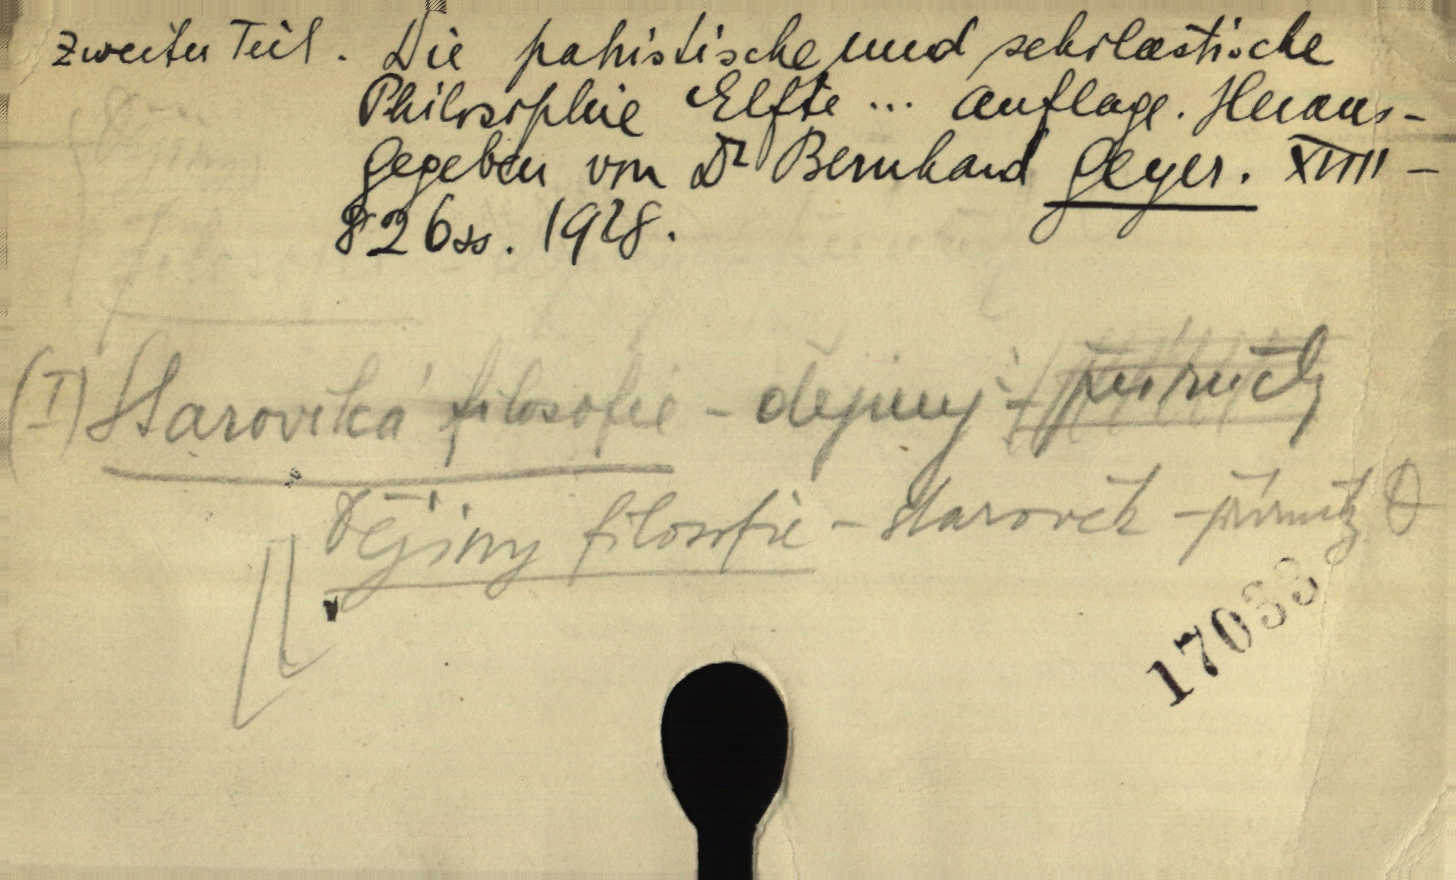 Zweiter Teil. Die patristische und scholastische
Philosophie Elfte ... Auflage. Heraus-
gegeben von Dr Bernhard Geyer. XVIII -
826 ss. 1928.
(I) Starověká filosofie - dějiny - příručky
Dějiny filosofie - Starověk - příručky
17033